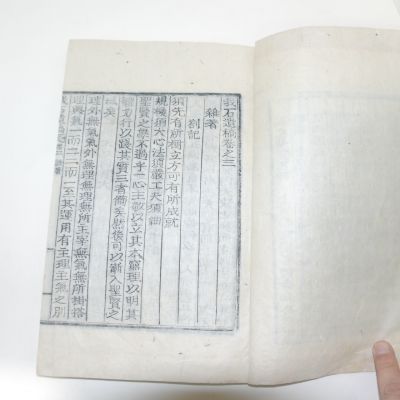 石遺稿卷之三
雜著
劄記
須先有所樹立方可有所成就
規模須大心法須嚴工夫須
聖賢之學不過乎一心主敬以立其本窮理以明其
力行以踐其實三者備矣然後可以漸入聖賢之
域矣
理外無氣氣外無理無理無所主宰無氣無所掛搭
理與氣一而二二而一至其運用有主理主氣之別